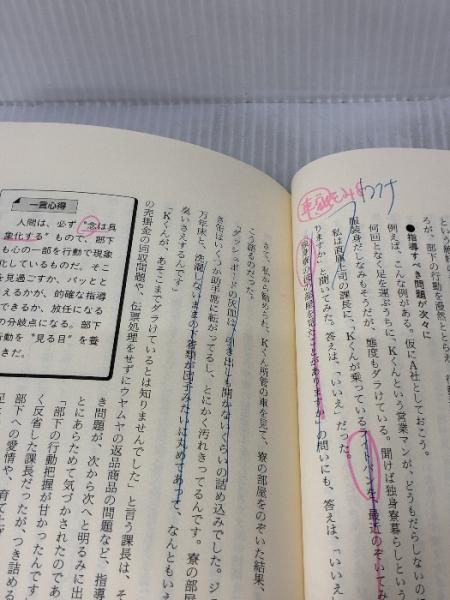 ろが、部下の行動を漫然ととらえ
●指導すべき問題が次々に
例えば、こんな例がある。仮にA社としておこう。
何回となく足を運ぶうちに、Kくんという営業マンが、どうもだらしない
服装身だしなみもそうだが、態度もダラけている。聞けば独身寮暮らしという
私は直属上司の課長に、「Kくんが乗っているライトバンを、最近のぞいてみ
りますか」と聞いてみた。答えは、「いいえ」だった。
の問いにも、答えは、「いいえ
さて、私から勧められ、Kくん所管の車を見て、寮の部屋をのぞいた結果、
こう語るのだった。
「ダッシュボードの次は、引き出しも開かないくらいの詰め込みでした。ジ
き缶はいくつか助手席に転がってるし、とにかく汚れきってるんです。寮の部屋
万年床と、洗濯しないままの下着類が団子みたいに丸めてあって、なんともいえ
臭いさえするんです」
「Kくんが、あそこまでダラけているとは知りませんでした」と言う課長は、そ
の売掛金の回収問題や、伝票処理をせずにウヤムヤの返品商品の問題など、指導
き問題が、次から次へと明るみに出
とにあらためて気づかされたのであ
「部下の行動把握が甘かったんです
く反省した課長だったが、
部下への愛情や、育て
一言心得
人間は、必ず“念は具
象化する”もので、部下
も心の一部を行動で現象
化しているものだ。そこ
を見過ごすか、パッと
えるかが、的確な指導
できるか、放任になる
の分岐点になる。部下
行動を“見る目”を養
きだ。